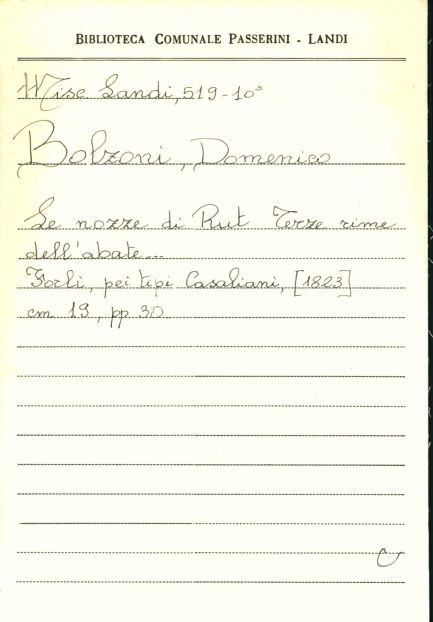 BIBLIOTECA COMUNALE PASSERINI - LANDI
Misc Landi, 519-10°
Bolzoni, Domenico
Le nozze di Rut Terze rime
dell'abate...
Forlì, pei tipi Casaliani, [1823]
cm 19, pp 30